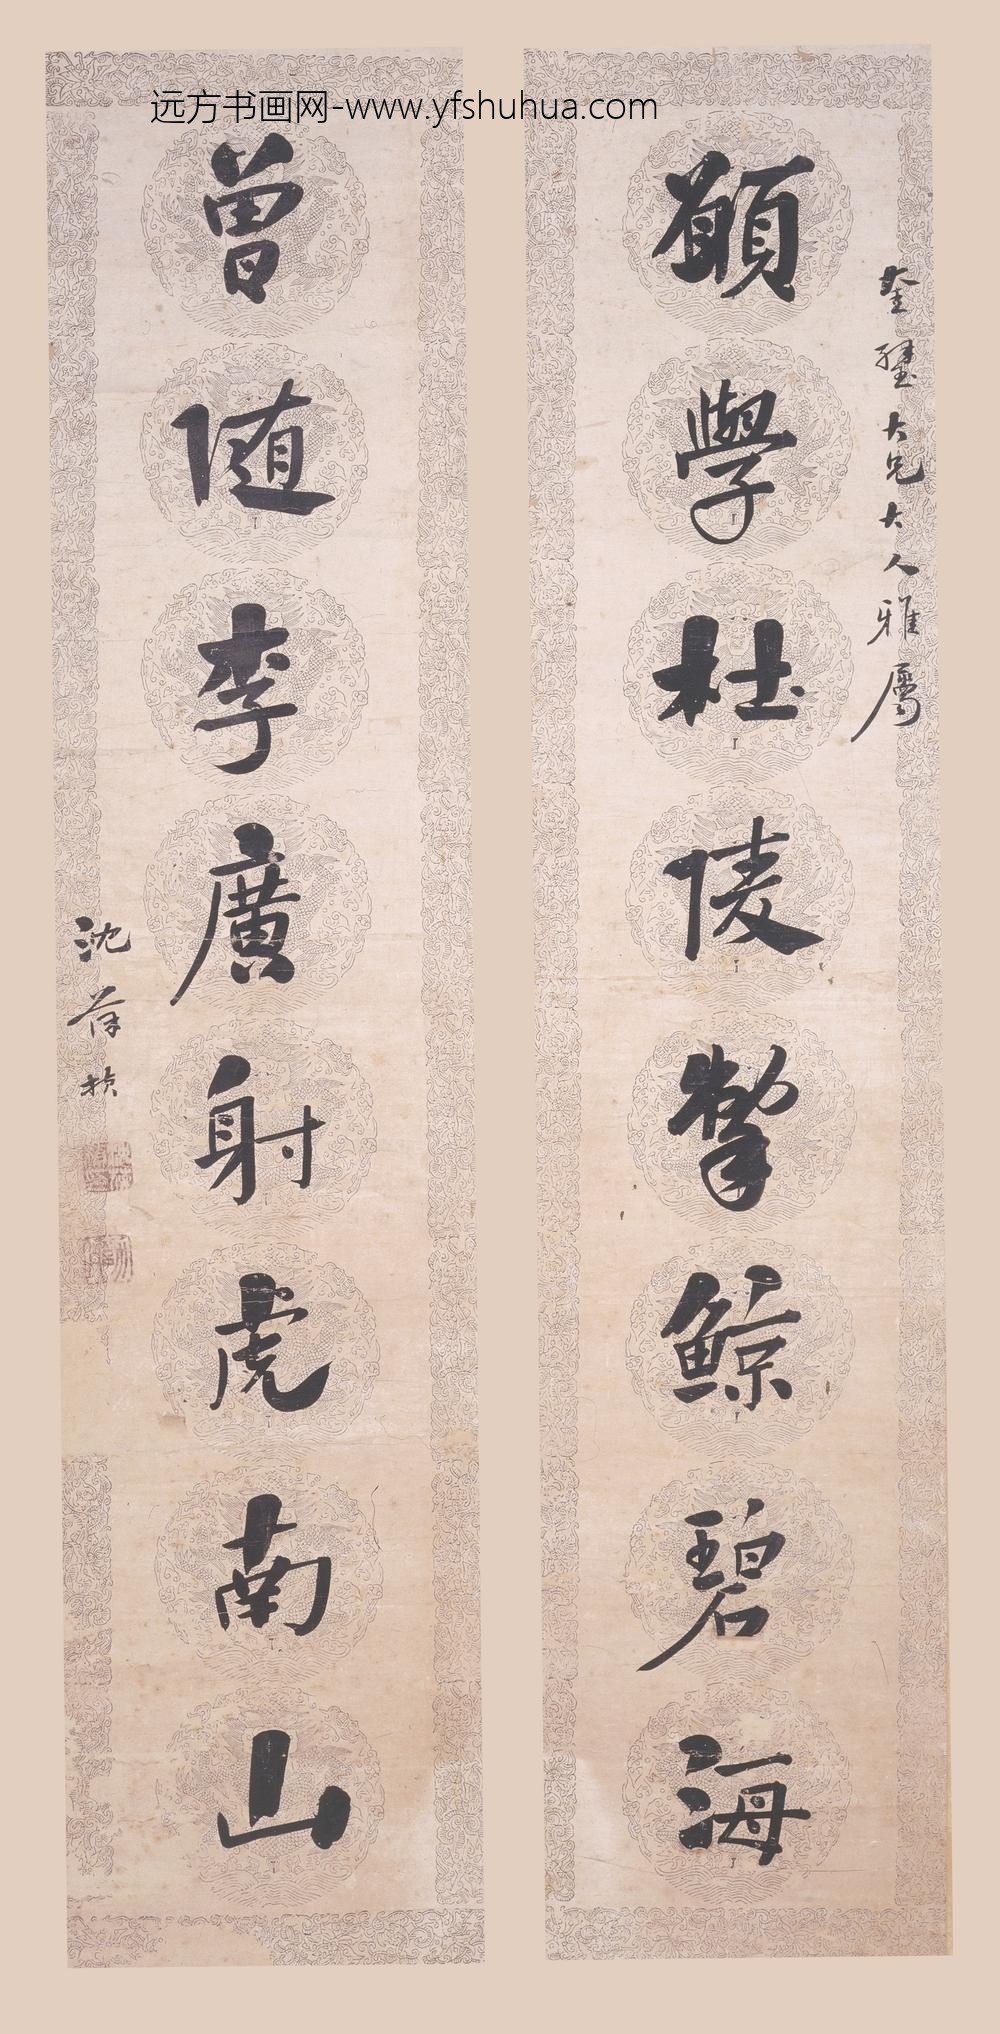 远方书画网-www.yfshuhua.com
奎璧大兄大人雅屬
願學杜陵掣鯨碧海
曾随李廣射虎南山
沈葆楨